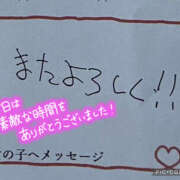 またよろしく!!
日は
素敵な時間を
ありがとうございました!
の子へメッセージ